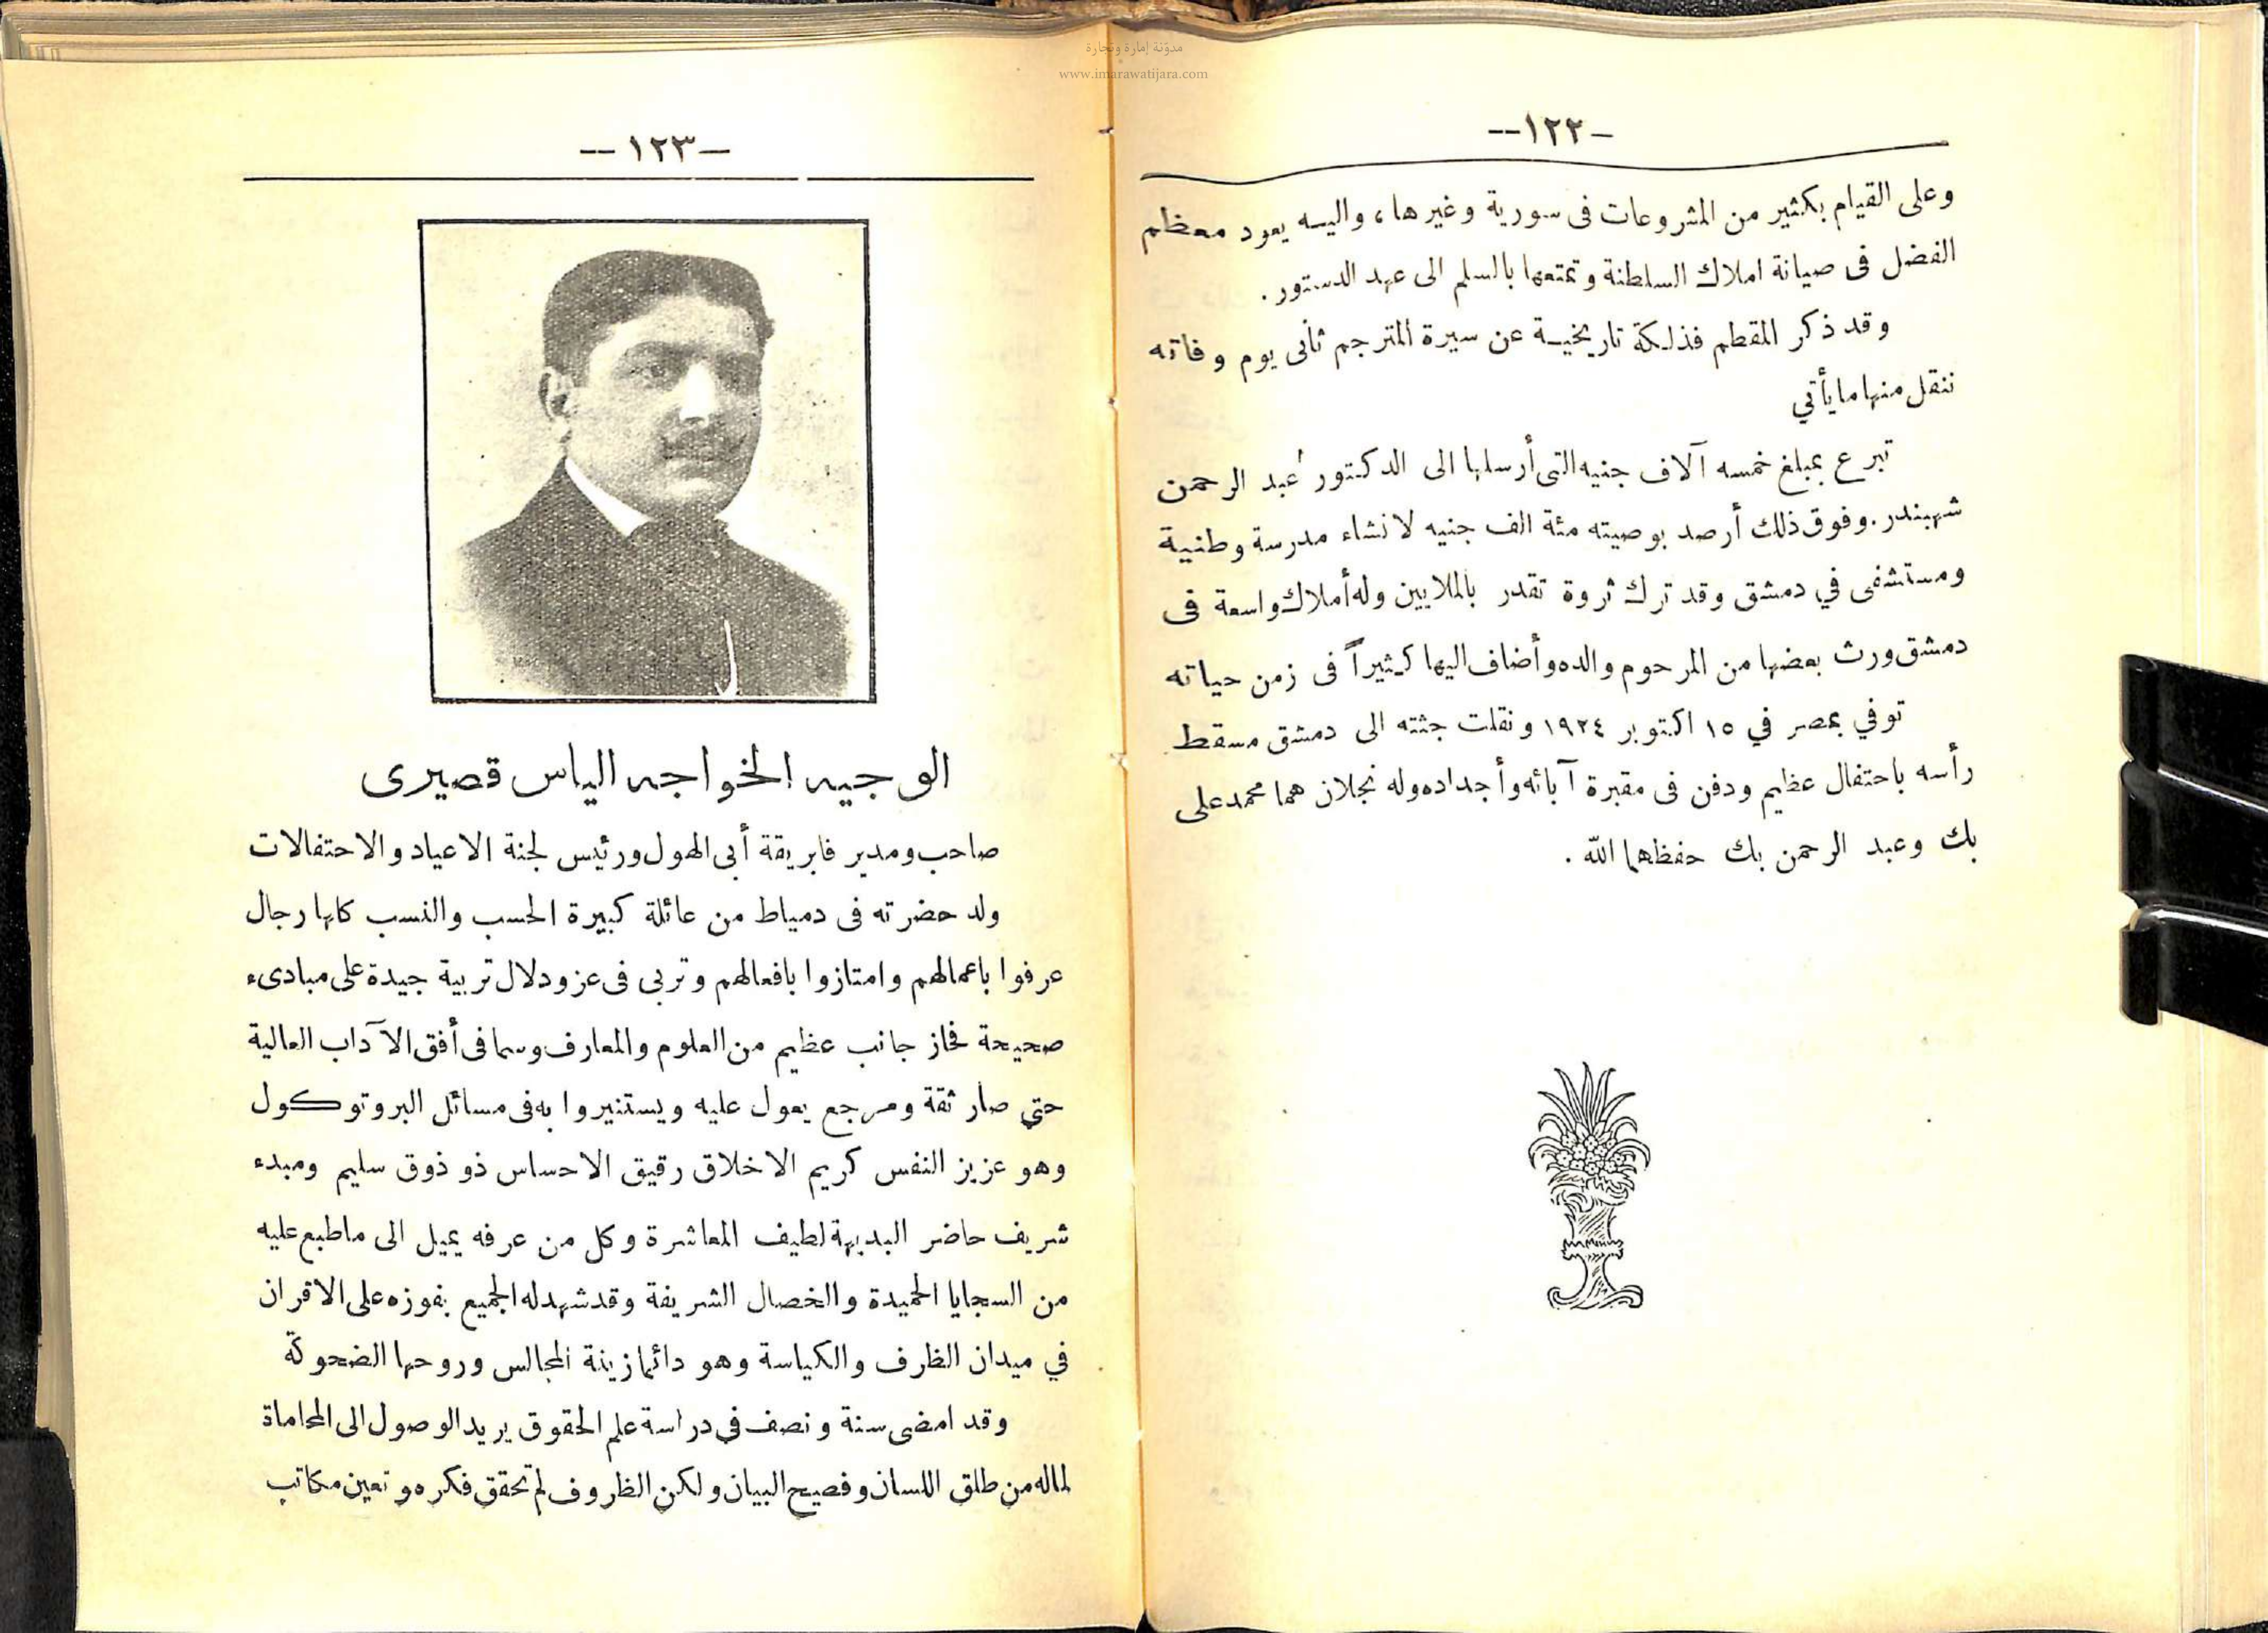 مدوّنة إمارة وتجارة
www.imarawatijara.com
–١٢٢––
وعلى القيام بكثير من المشروعات فى سورية وغيرها ، واليه يعود معظم
الفضل فى صيانة املاك السلطنة وتمتعها بالسلم الى عهد الدستور .
وقد ذكر المقطم فذلكة تاريخية عن سيرة المترجم ثانى يوم وفاته
ننقل منها مايأتي
تبرع بمبلغ خمسه آلاف جنيه التى أرسلها الى الدكتور عبد الرحمن
شهبندر . وفوق ذلك أرصد بوصيته مئة الف جنيه لانشاء مدرسة وطنية
ومستشفى في دمشق وقد ترك ثروة تقدر بالملايين وله أملاك واسعة فى
دمشق ورث بعضها من المرحوم والده وأضاف اليها كثيراً فى زمن حياته
توفي بمصر في ١٥ اكتوبر ١٩٢٤ ونقلت جثته الى دمشق مسقط
رأسه باحتفال عظيم ودفن فى مقبرة آبائه وأجداده وله نجلان هما محمد على
بك وعبد الرحمن بك حفظهما الله .
–١٢٣ ––
الوجيه الخواجه الياس قصيرى
صاحب ومدير فابريقة أبى الهول ورئيس لجنة الاعياد والاحتفالات
ولد حضرته فى دمياط من عائلة كبيرة الحسب والنسب كلها رجال
عرفوا باعمالهم وامتازوا بافعالهم وتربى فى عز ودلال تربية جيدة على مبادىء
صحيحة فحاز جانب عظيم من العلوم والمعارف وسما فى أفق الآداب العالية
حتى صار ثقة ومرجع يعول عليه ويستنيروا به فى مسائل البروتوكول
وهو عزيز النفس كريم الاخلاق رقيق الاحساس ذو ذوق سليم ومبدء
شريف حاضر البديهة لطيف المعاشرة وكل من عرفه يميل الى ماطبع عليه
من السجايا الحميدة والخصال الشريفة وقد شهد له الجميع بفوزه على الاقران
في ميدان الظرف والكياسة وهو دائما زينة المجالس وروحها الضحوكة
وقد امضى سنة ونصف في دراسة علم الحقوق يريد الوصول الى المحاماة
لماله من طلق اللسان وفصيح البيان ولكن الظروف لم تحقق فكره وتعين مكاتب